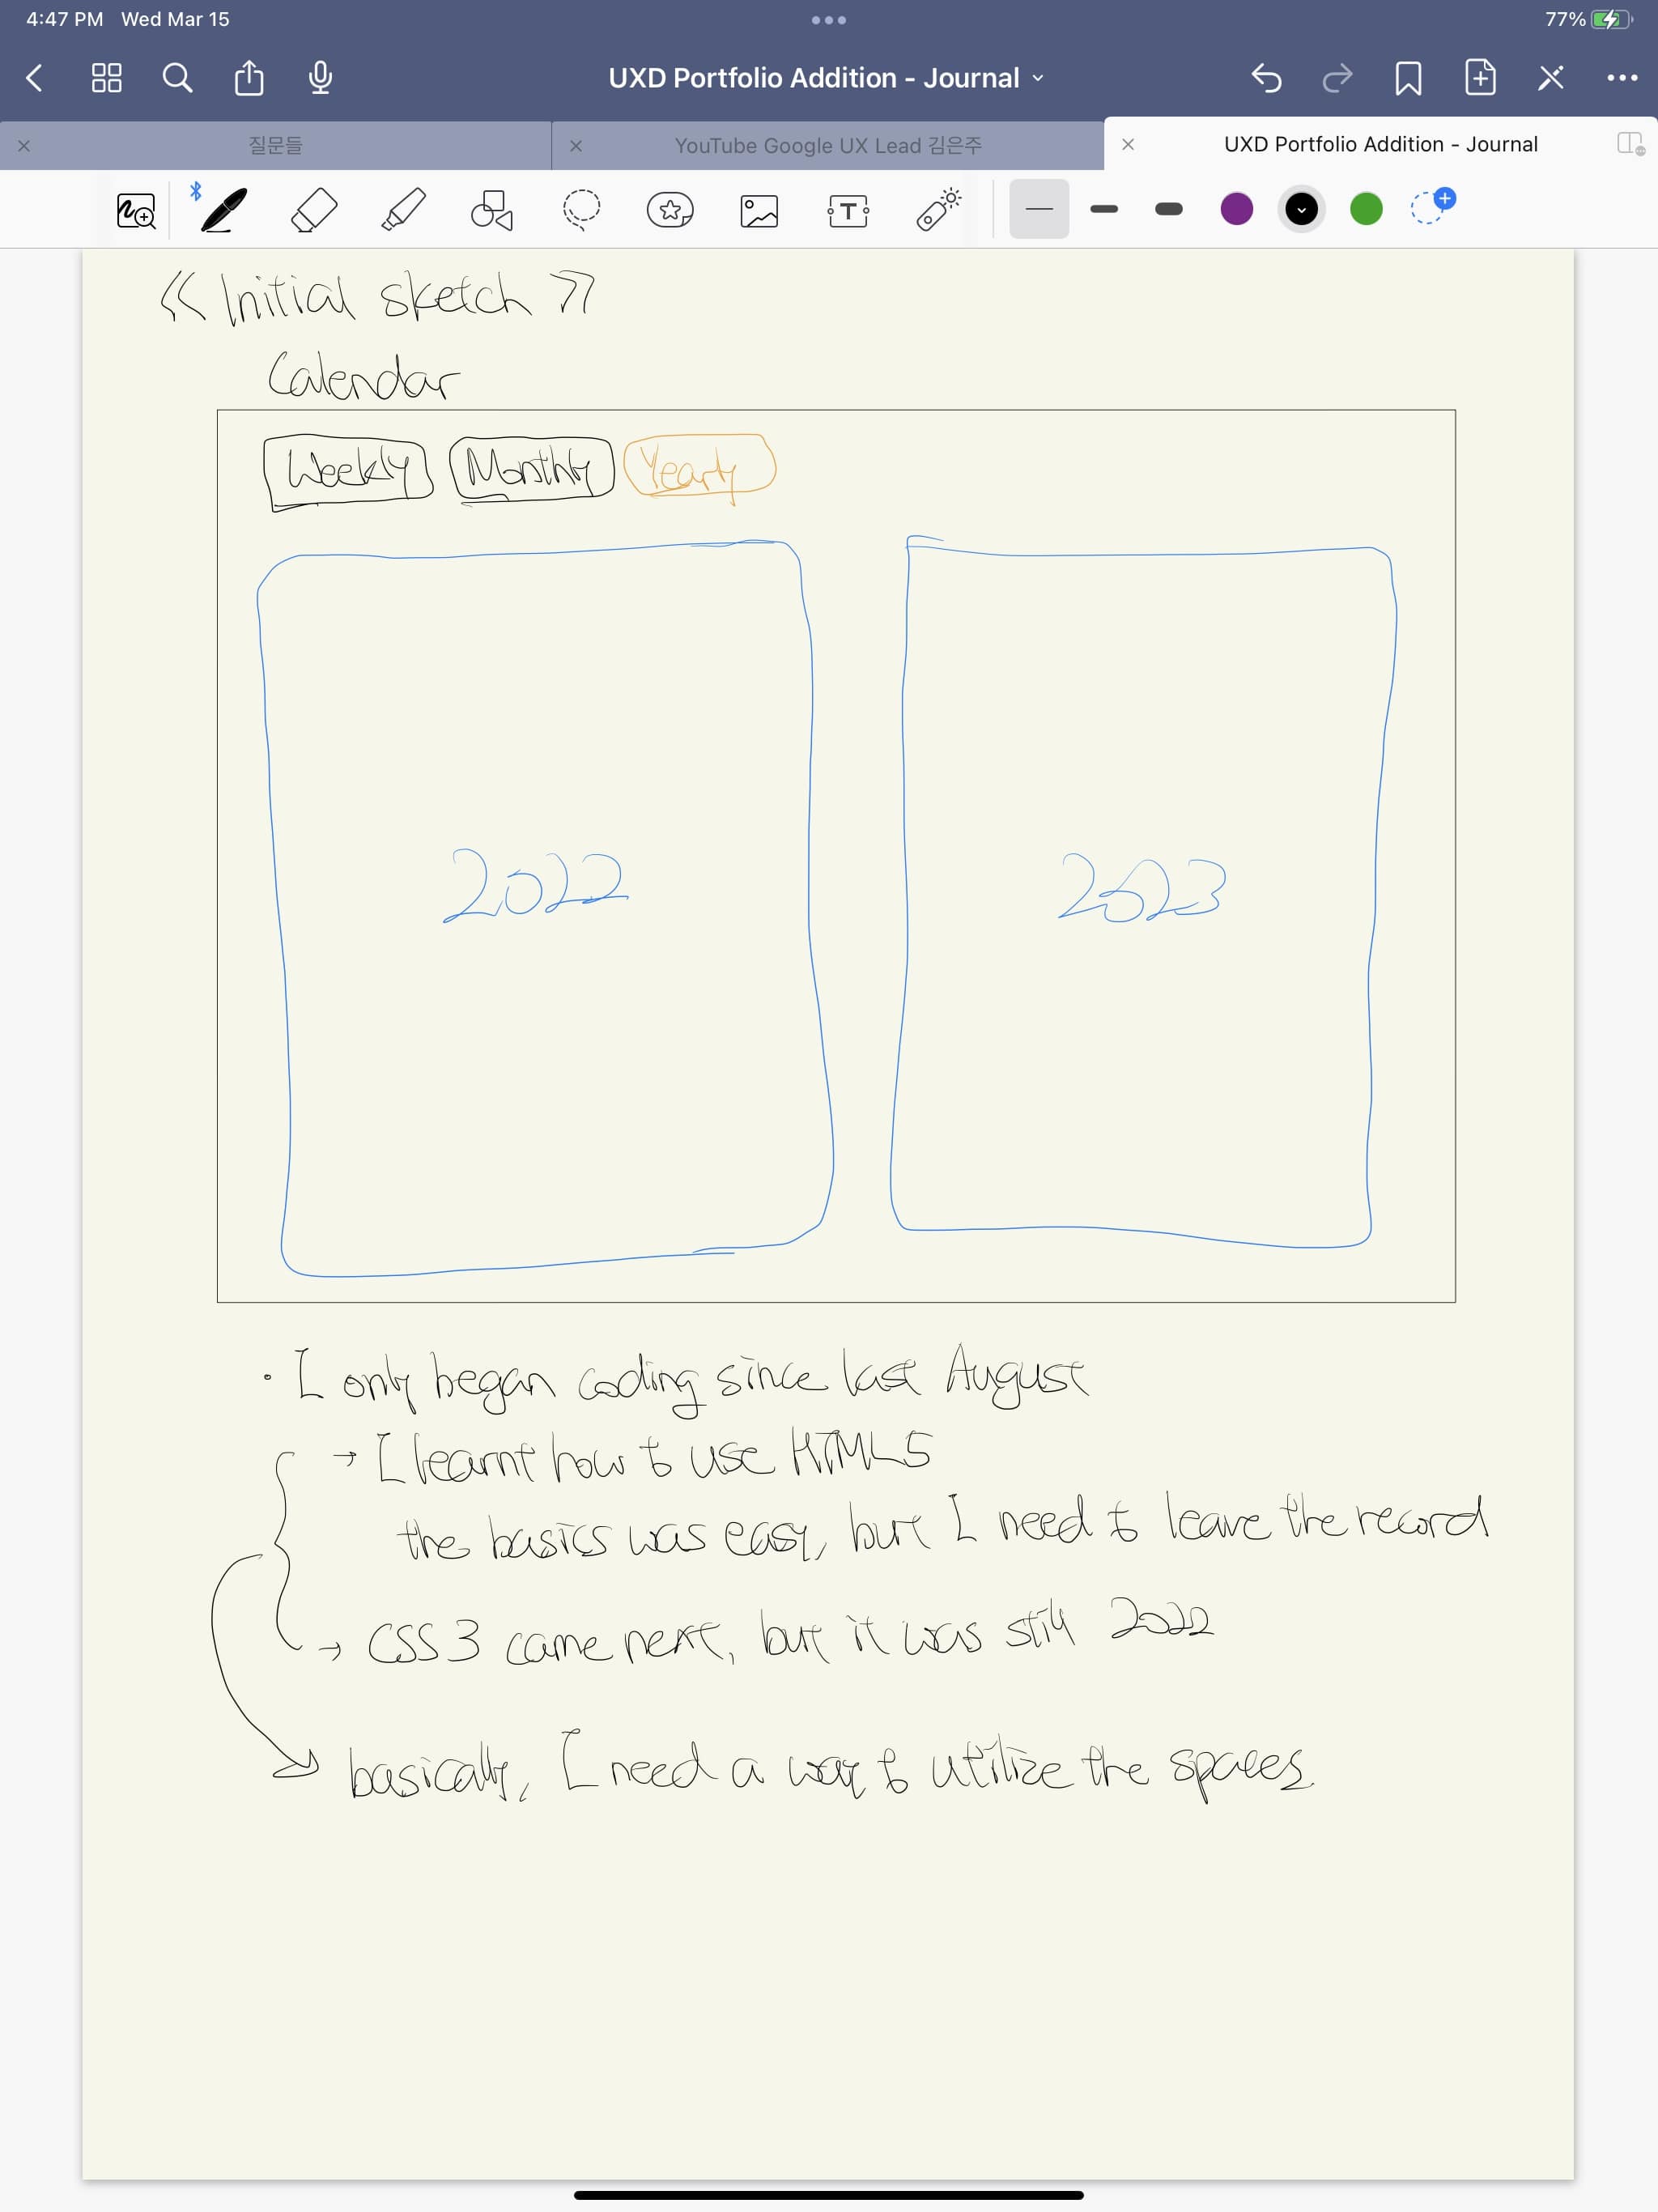 4:47 PM Wed Mar 15
77%
UXD Portfolio Addition - Journal
질문들
YouTube Google UX Lead 김은주
UXD Portfolio Addition - Journal
T
<< Initial sketch >>
Calendar
Weekly Monthly Yearly
2022
2023
• I only began coding since last August
→ I learnt how to use HTML5
the basics was easy, but I need to leave the record
→ CSS3 came next, but it was still 2022
basically, I need a way to utilize the spaces.